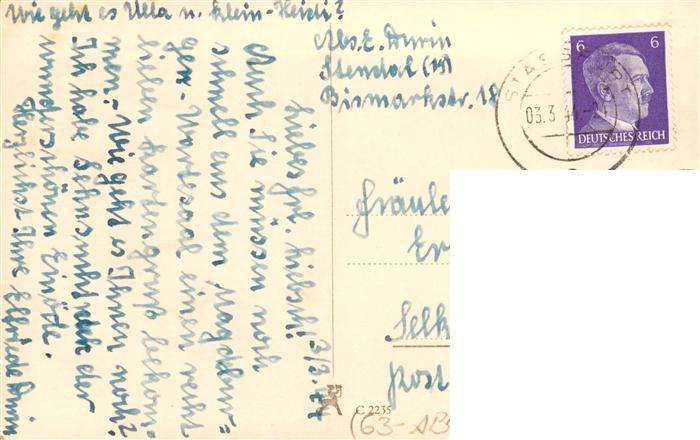 Wie geht es Ulla u. Klein-Heidi?
Abs. E. Durin
Stendal (19)
Bismarkstr. 18
6 6
DEUTSCHES REICH
03.3
Fräule
Er
Selk
Post
C 2235
(63-AB
3/3.44
Liebes Frl. Liebsch!
Auch Sie müssen noch
schnell aus dem Magdebur-
ger-Wartesaal einen recht
lieben Kartengruß bekom-
men. Wie geht es Ihnen noch?
Ich habe Sehnsucht nach der
wunderschönen Einöde.
Herzlichst Ihre Elfriede Durin